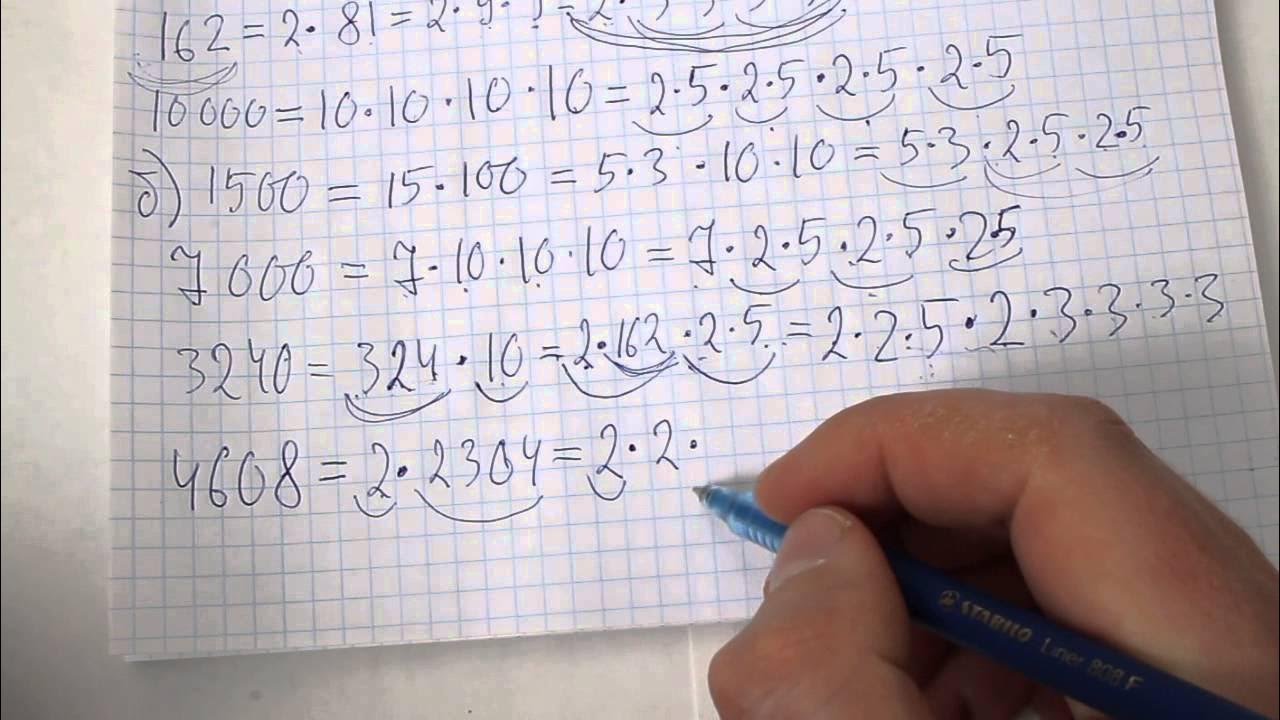 162 = 2 · 81 = 2 · 9 · 9 = 2 ·
10 000 = 10 · 10 · 10 · 10 = 2 · 5 · 2 · 5 · 2 · 5 · 2 · 5
б) 1500 = 15 · 100 = 5 · 3 · 10 · 10 = 5 · 3 · 2 · 5 · 2 · 5
7 000 = 7 · 10 · 10 · 10 = 7 · 2 · 5 · 2 · 5 · 2 · 5
3240 = 324 · 10 = 2 · 162 · 2 · 5 = 2 · 2 · 5 · 2 · 3 · 3 · 3 · 3
4608 = 2 · 2304 = 2 · 2 ·
STABILO Liner 808 F